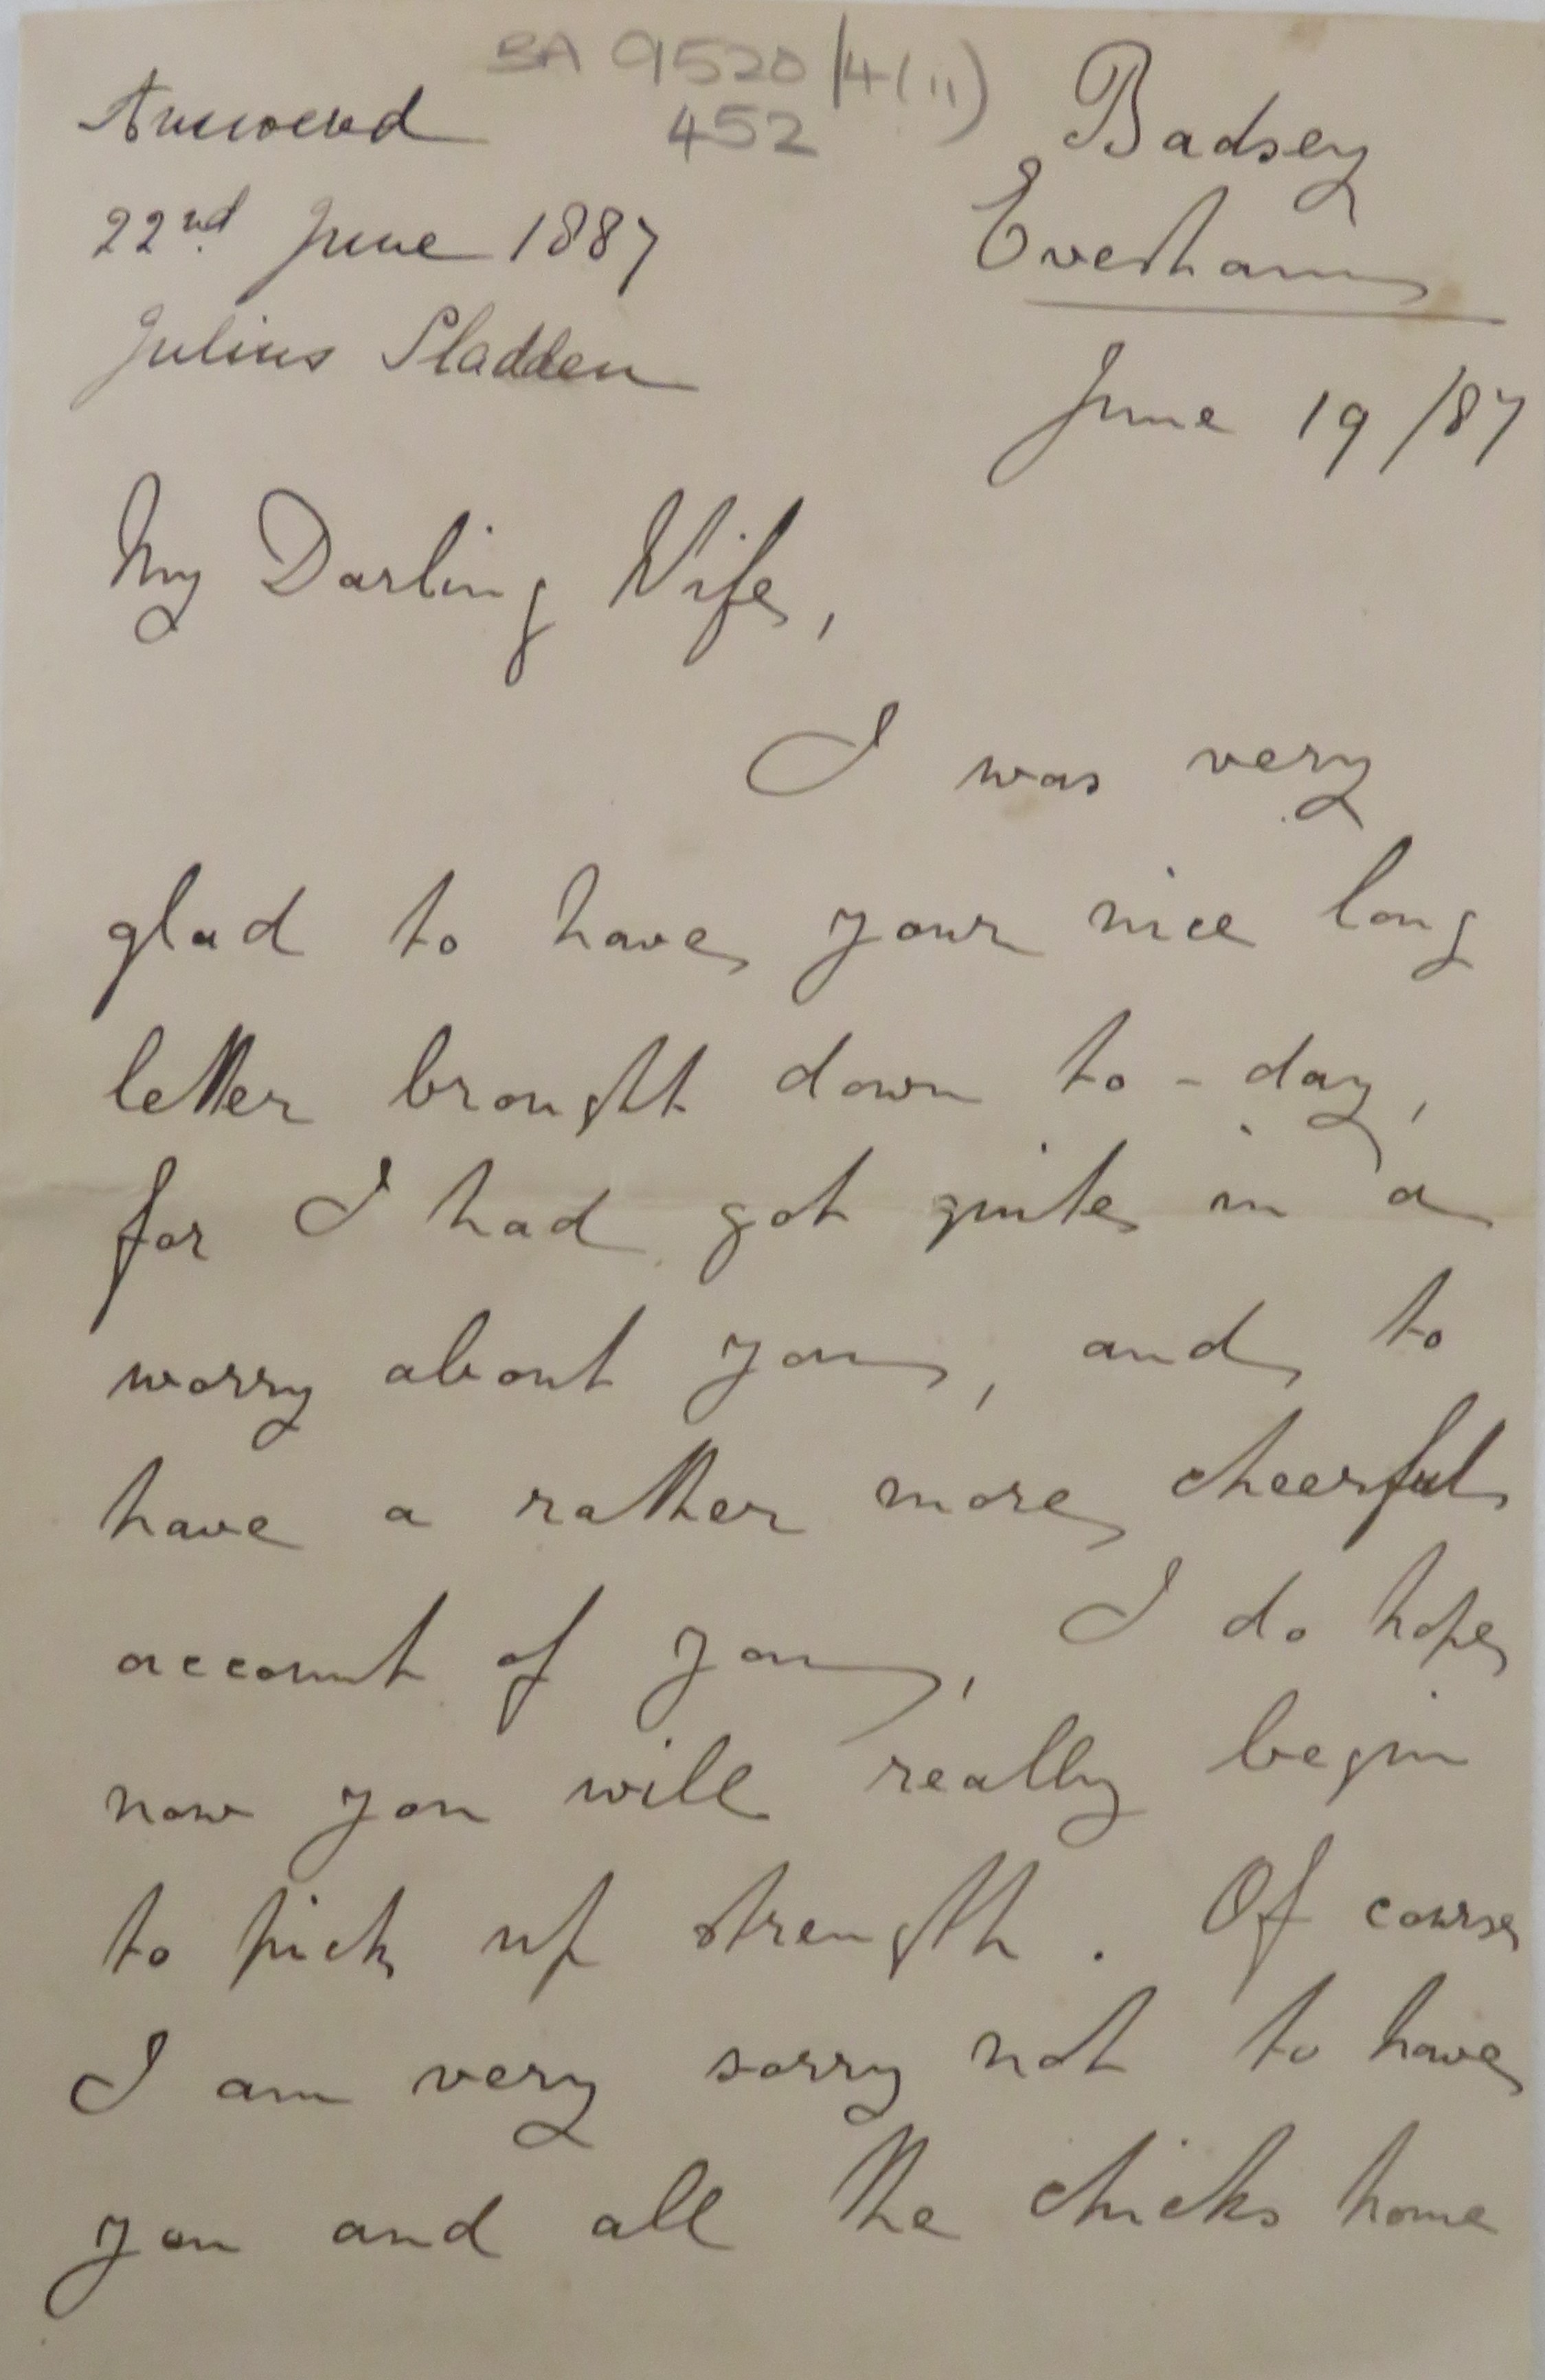 BA 9520/4(ii)
452
Answered
22nd June 1887
Julius Sladden
Badsey
Evesham
June 19/87
My Darling Wife,
I was very
glad to have your nice long
letter brought down to-day,
for I had got quite in a
worry about you, and to
have a rather more cheerful
account of you, I do hope
now you will really begin
to pick up strength. Of course
I am very sorry not to have
you and all the chicks home